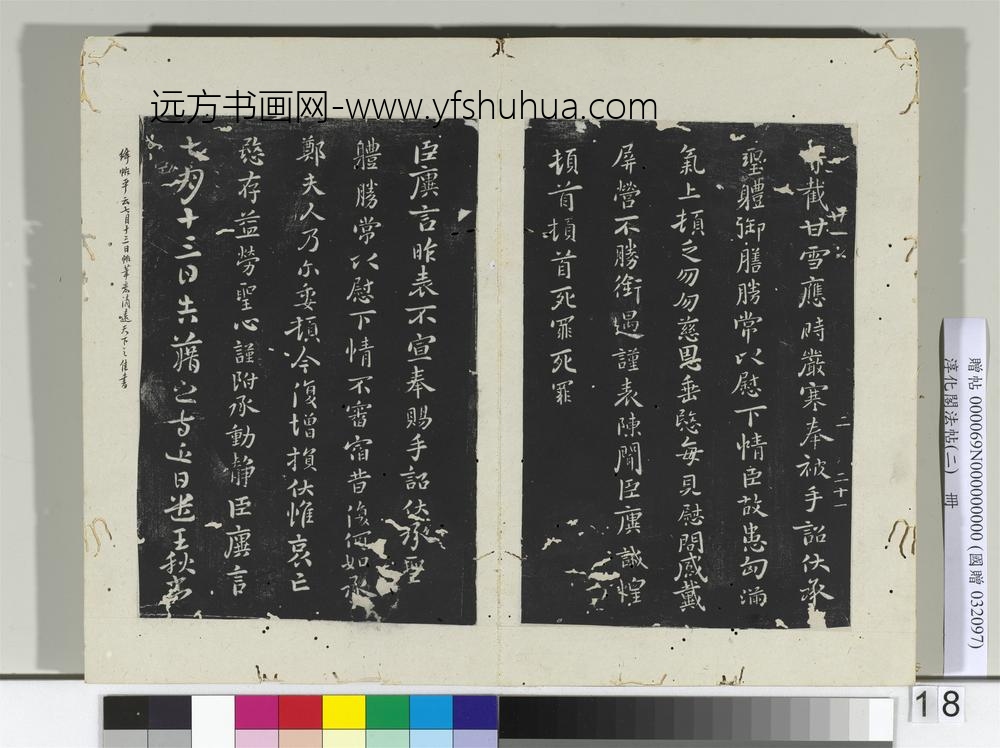 远方书画网-www.yfshuhua.com
截甘雪應時嚴寒奉被手詔伏承
聖體御膳勝常以慰下情臣故患匈滿
氣上頓乏勿勿慈恩垂愍每見慰問感戴
屏營不勝銜遇謹表陳聞臣廙誠惶
頓首頓首死罪死罪
二 二十一
臣廙言昨表不宣奉賜手詔伏承聖
體勝常以慰下情不審宿昔復何如承
鄭夫人乃尔委頓今復增損伏惟哀亡
愍存益勞聖心謹附承動靜臣廙言
七月十三日告藉之等近日遣王秋書
絳帖平云七月十三日帖筆意清遠天下之佳書
贈帖 000069N000000000 (國贈 032097)
淳化閣法帖(二) 冊
18